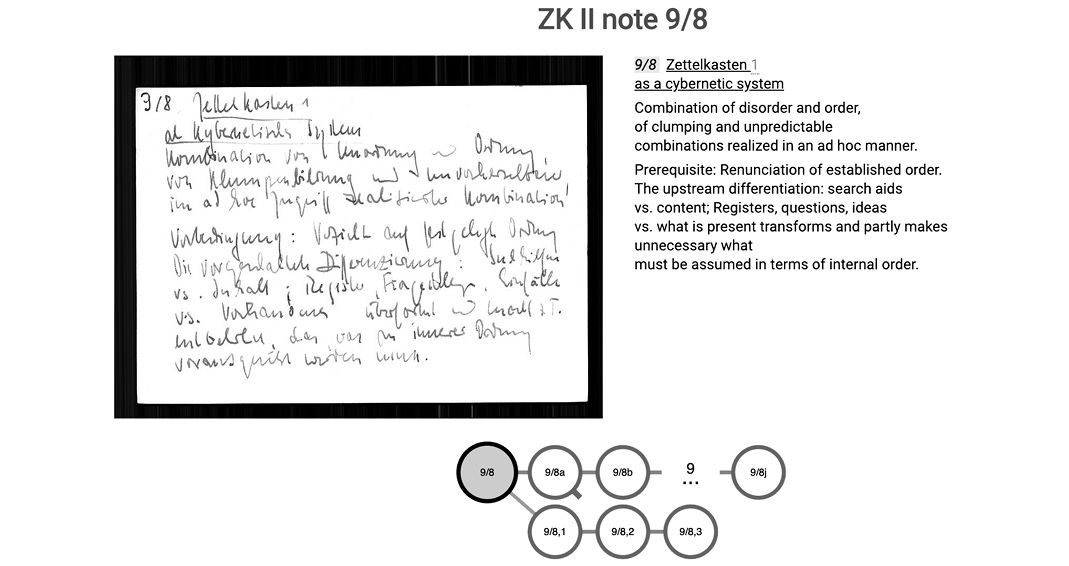 ZK II note 9/8
9/8 Zettelkasten 1
als kybernetisches System
Kombination von Unordnung und Ordnung,
von Klumpenbildung und unvorhersehbarer,
im ad hoc Zugriff realisierter Kombination
Vorbedingung: Verzicht auf festgelegte Ordnung
Die vorgeschaltete Differenzierung: Suchhilfen
vs. Inhalt; Register, Fragestellungen, Einfälle
vs. Vorhandenes überformt und macht z.T.
entbehrlich, das, was an innerer Ordnung
vorausgesetzt werden muß.
9/8 Zettelkasten 1
as a cybernetic system
Combination of disorder and order,
of clumping and unpredictable
combinations realized in an ad hoc manner.
Prerequisite: Renunciation of established order.
The upstream differentiation: search aids
vs. content; Registers, questions, ideas
vs. what is present transforms and partly makes
unnecessary what
must be assumed in terms of internal order.
9/8 9/8a 9/8b 9 ... 9/8j
9/8,1 9/8,2 9/8,3